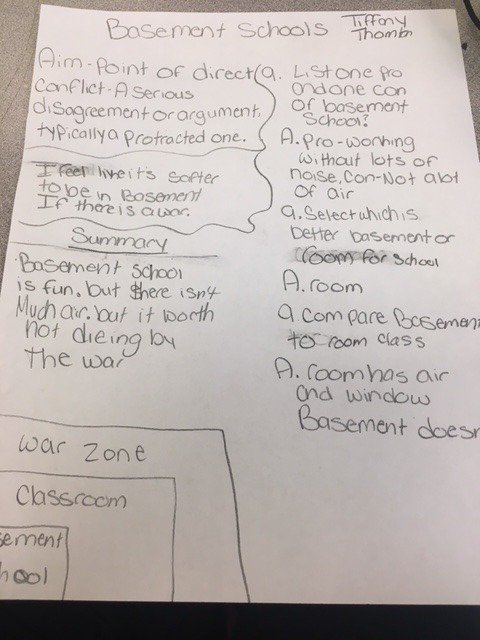 Basement Schools
Tiffany
Aim-Point of direct
Conflict-A serious
disagreement or argument,
typically a protracted one.
I feel like it's safter
to be in Basement
If there is a war.
Summary
Basement school
is fun. but there isn't
Much air. but it worth
not dieing by
the war
q. List one pro
and one con
of basement
School?
A. pro-working
without lots of
noise, con-Not a lot
of air
q. Select which is
better basement or
room for school
A. room
q Compare Basemen
to room class
A. room has air
and window
Basement doesn
war zone
Classroom
sement
hool